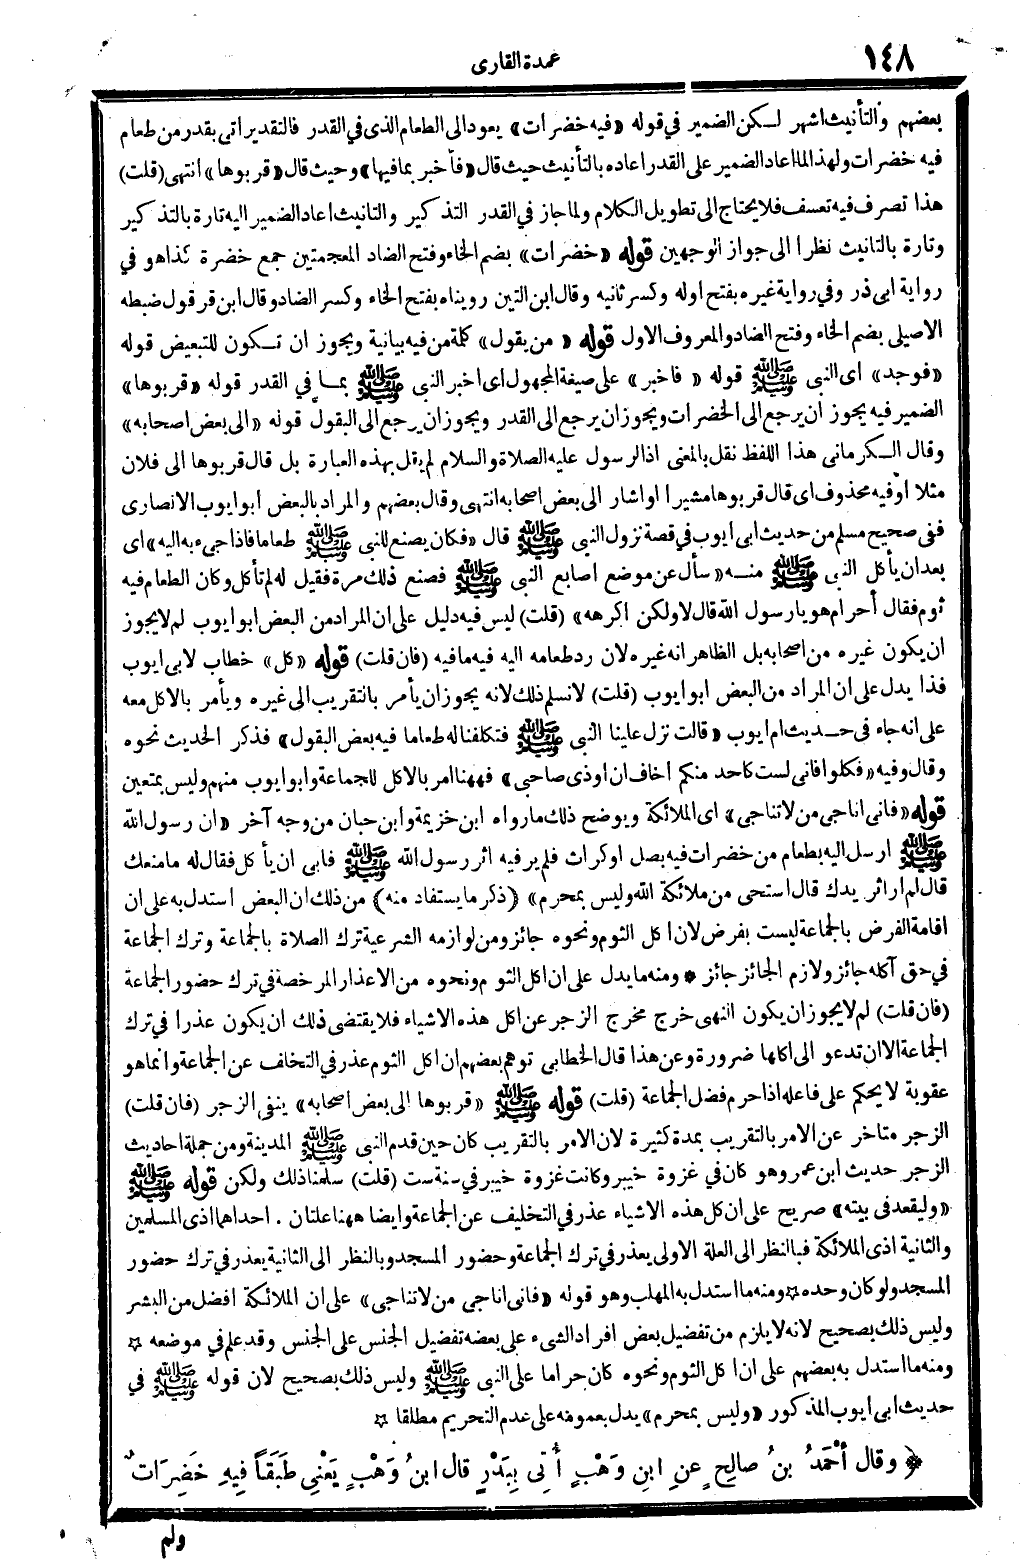 ١٤٨
عمدة القارى
بعضهم والتأنيث اشهر لكن الضمير في قوله «فيه خضرات» يعود الى الطعام الذى في القدر فالتقدير اتى بقدر من طعام
فيه خضرات ولهذا لما اعاد الضمير على القدر اعاده بالتأنيث حيث قال «فأخبر بما فيها» وحيث قال «قربوها» انتهى (قلت)
هذا تصرف فيه تعسف فلا يحتاج الى تطويل الكلام ولما جاز في القدر التذكير والتانيث اعاد الضمير اليه تارة بالتذكير
وتارة بالتانيث نظرا الى جواز الوجهين قوله «خضرات» بضم الخاء وفتح الضاد المعجمتين جمع خضرة كذا هو في
رواية ابى ذر وفي رواية غيره بفتح اوله وكسر ثانيه وقال ابن التين رويناه بفتح الخاء وكسر الضاد وقال ابن قرقول ضبطه
الاصيلى بضم الخاء وفتح الضاد والمعروف الاول قوله «من بقول» كلمة من فيه بيانية ويجوز ان تكون للتبعيض قوله
«فوجد» اى النبى ﷺ قوله «فاخبر» على صيغة المجهول اى اخبر النبى ﷺ بما في القدر قوله «قربوها»
الضمير فيه يجوز ان يرجع الى الخضرات ويجوز ان يرجع الى القدر ويجوز ان يرجع الى البقول قوله «الى بعض اصحابه»
وقال الكرمانى هذا اللفظ نقل بالمعنى اذ الرسول عليه الصلاة والسلام لم يقل بهذه العبارة بل قال قربوها الى فلان
مثلا او فيه محذوف اى قال قربوها مشيرا او اشار الى بعض اصحابه انتهى وقال بعضهم والمراد بالبعض ابو ايوب الانصارى
ففى صحيح مسلم من حديث ابى ايوب في قصة نزول النبى ﷺ قال «فكان يصنع للنبى ﷺ طعاما فاذا جىء به اليه» اى
بعد ان يأكل النبى ﷺ منه «سأل عن موضع اصابع النبى ﷺ فصنع ذلك مرة فقيل له لم تأكل وكان الطعام فيه
ثوم فقال أحرام هو يا رسول الله قال لا ولكن اكرهه» (قلت) ليس فيه دليل على ان المراد من البعض ابو ايوب لم لا يجوز
ان يكون غيره من اصحابه بل الظاهر انه غيره لان رد طعامه اليه فيه ما فيه (فان قلت) قوله «كل» خطاب لابى ايوب
فذا يدل على ان المراد من البعض ابو ايوب (قلت) لانسلم ذلك لانه يجوز ان يأمر بالتقريب الى غيره ويأمر بالاكل معه
على انه جاء في حديث ام ايوب «قالت نزل علينا النبى ﷺ فتكلفنا له طعاما فيه بعض البقول» فذكر الحديث نحوه
وقال وفيه «فكلوا فانى لست كاحد منكم اخاف ان اوذى صاحبى» فههنا امر بالاكل للجماعة وابو ايوب منهم وليس بمتعين
قوله «فانى اناجى من لاتناجى» اى الملائكة ويوضح ذلك مارواه ابن خزيمة وابن حبان من وجه آخر «ان رسول الله
ﷺ ارسل اليه بطعام من خضرات فيه بصل او كراث فلم ير فيه اثر رسول الله ﷺ فابى ان يأكل فقال له مامنعك
قال لم ار اثر يدك قال استحى من ملائكة الله وليس بمحرم» (ذكر ما يستفاد منه) من ذلك ان البعض استدل به على ان
اقامة الفرض بالجماعة ليست بفرض لان اكل الثوم ونحوه جائز ومن لوازمه الشرعية ترك الصلاة بالجماعة وترك الجماعة
في حق آكله جائز ولازم الجائز جائز * ومنه ما يدل على ان اكل الثوم ونحوه من الاعذار المرخصة في ترك حضور الجماعة
(فان قلت) لم لا يجوز ان يكون النهى خرج مخرج الزجر عن اكل هذه الاشياء فلا يقتضى ذلك ان يكون عذرا في ترك
الجماعة الا ان تدعو الى اكلها ضرورة وعن هذا قال الخطابى توهم بعضهم ان اكل الثوم عذر في التخلف عن الجماعة وانما هو
عقوبة لا يحكم على فاعله اذا حرم فضل الجماعة (قلت) قوله ﷺ «قربوها الى بعض اصحابه» ينفى الزجر (فان قلت)
الزجر متاخر عن الامر بالتقريب بمدة كثيرة لان الامر بالتقريب كان حين قدم النبى ﷺ المدينة ومن جملة احاديث
الزجر حديث ابن عمر وهو كان في غزوة خيبر وكانت غزوة خيبر في سنة ست (قلت) سلمنا ذلك ولكن قوله ﷺ
«وليقعد فى بيته» صريح على ان كل هذه الاشياء عذر في التخليف عن الجماعة وايضا ههنا علتان . احداهما اذى المسلمين
والثانية اذى الملائكة فبالنظر الى العلة الاولى يعذر في ترك الجماعة وحضور المسجد وبالنظر الى الثانية يعذر في ترك حضور
المسجد ولو كان وحده * ومنه ما استدل به المهلب وهو قوله «فانى اناجى من لاتناجى» على ان الملائكة افضل من البشر
وليس ذلك بصحيح لانه لا يلزم من تفضيل بعض افراد الشىء على بعضه تفضيل الجنس على الجنس وقد علم في موضعه *
ومنه ما استدل به بعضهم على ان اكل الثوم ونحوه كان حراما على النبى ﷺ وليس ذلك بصحيح لان قوله ﷺ في
حديث ابى ايوب المذكور «وليس بمحرم» يدل بعمومه على عدم التحريم مطلقا *
﴿ وقال أَحْمَدُ بنُ صالِحٍ عنِ ابنِ وَهْبٍ أُتِى بِبَدْرٍ قال ابنُ وَهْبٍ يَعْنِى طَبَقاً فِيهِ خَضِرَاتٌ
ولم